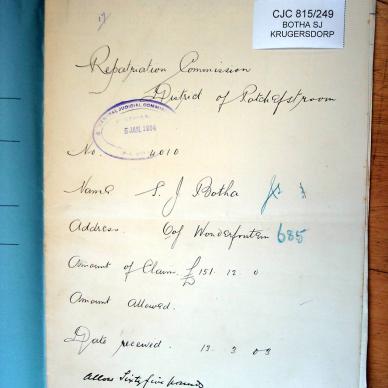 CJC 815/249
BOTHA SJ
KRUGERSDORP
Repatriation Commission
District of Potchefstroom
CENTRAL JUDICIAL COMM
5 JAN. 1904
No. 4010
Name S. J Botha
Address. of Wonderfontein 685
Amount of Claim. £ 151. 12. 0
Amount Allowed.
Date received. 13. 3 03
Allow Sixty five pounds